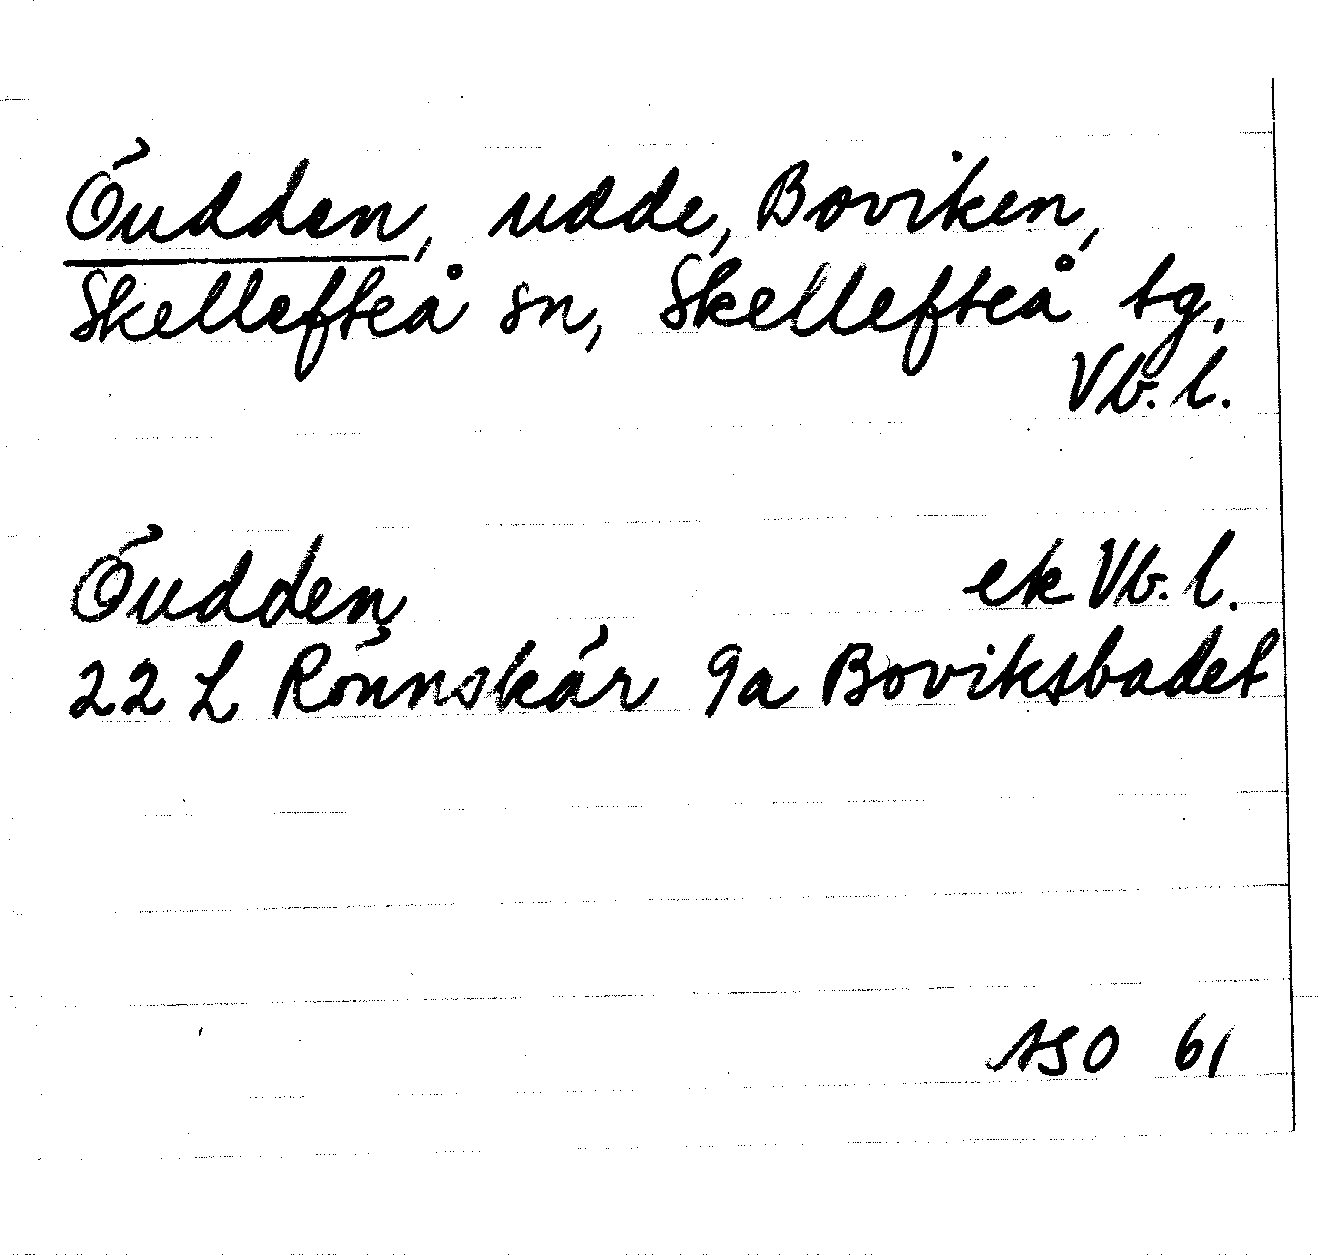 Öudden, udde, Boviken,
Skellefteå sn, Skellefteå tg.
Vb. l.
Öudden ek Vb. l.
22 L Rönnskär 9a Boviksbadet
ASO 61